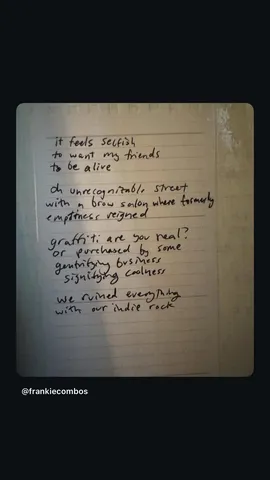 it feels selfish
to want my friends
to be alive
oh unrecognizable street
with a brow salon where formerly
emptiness reigned
graffiti are you real?
or purchased by some
gentrifying business
signifying coolness
we ruined everything
with our indie rock
@frankiecombos